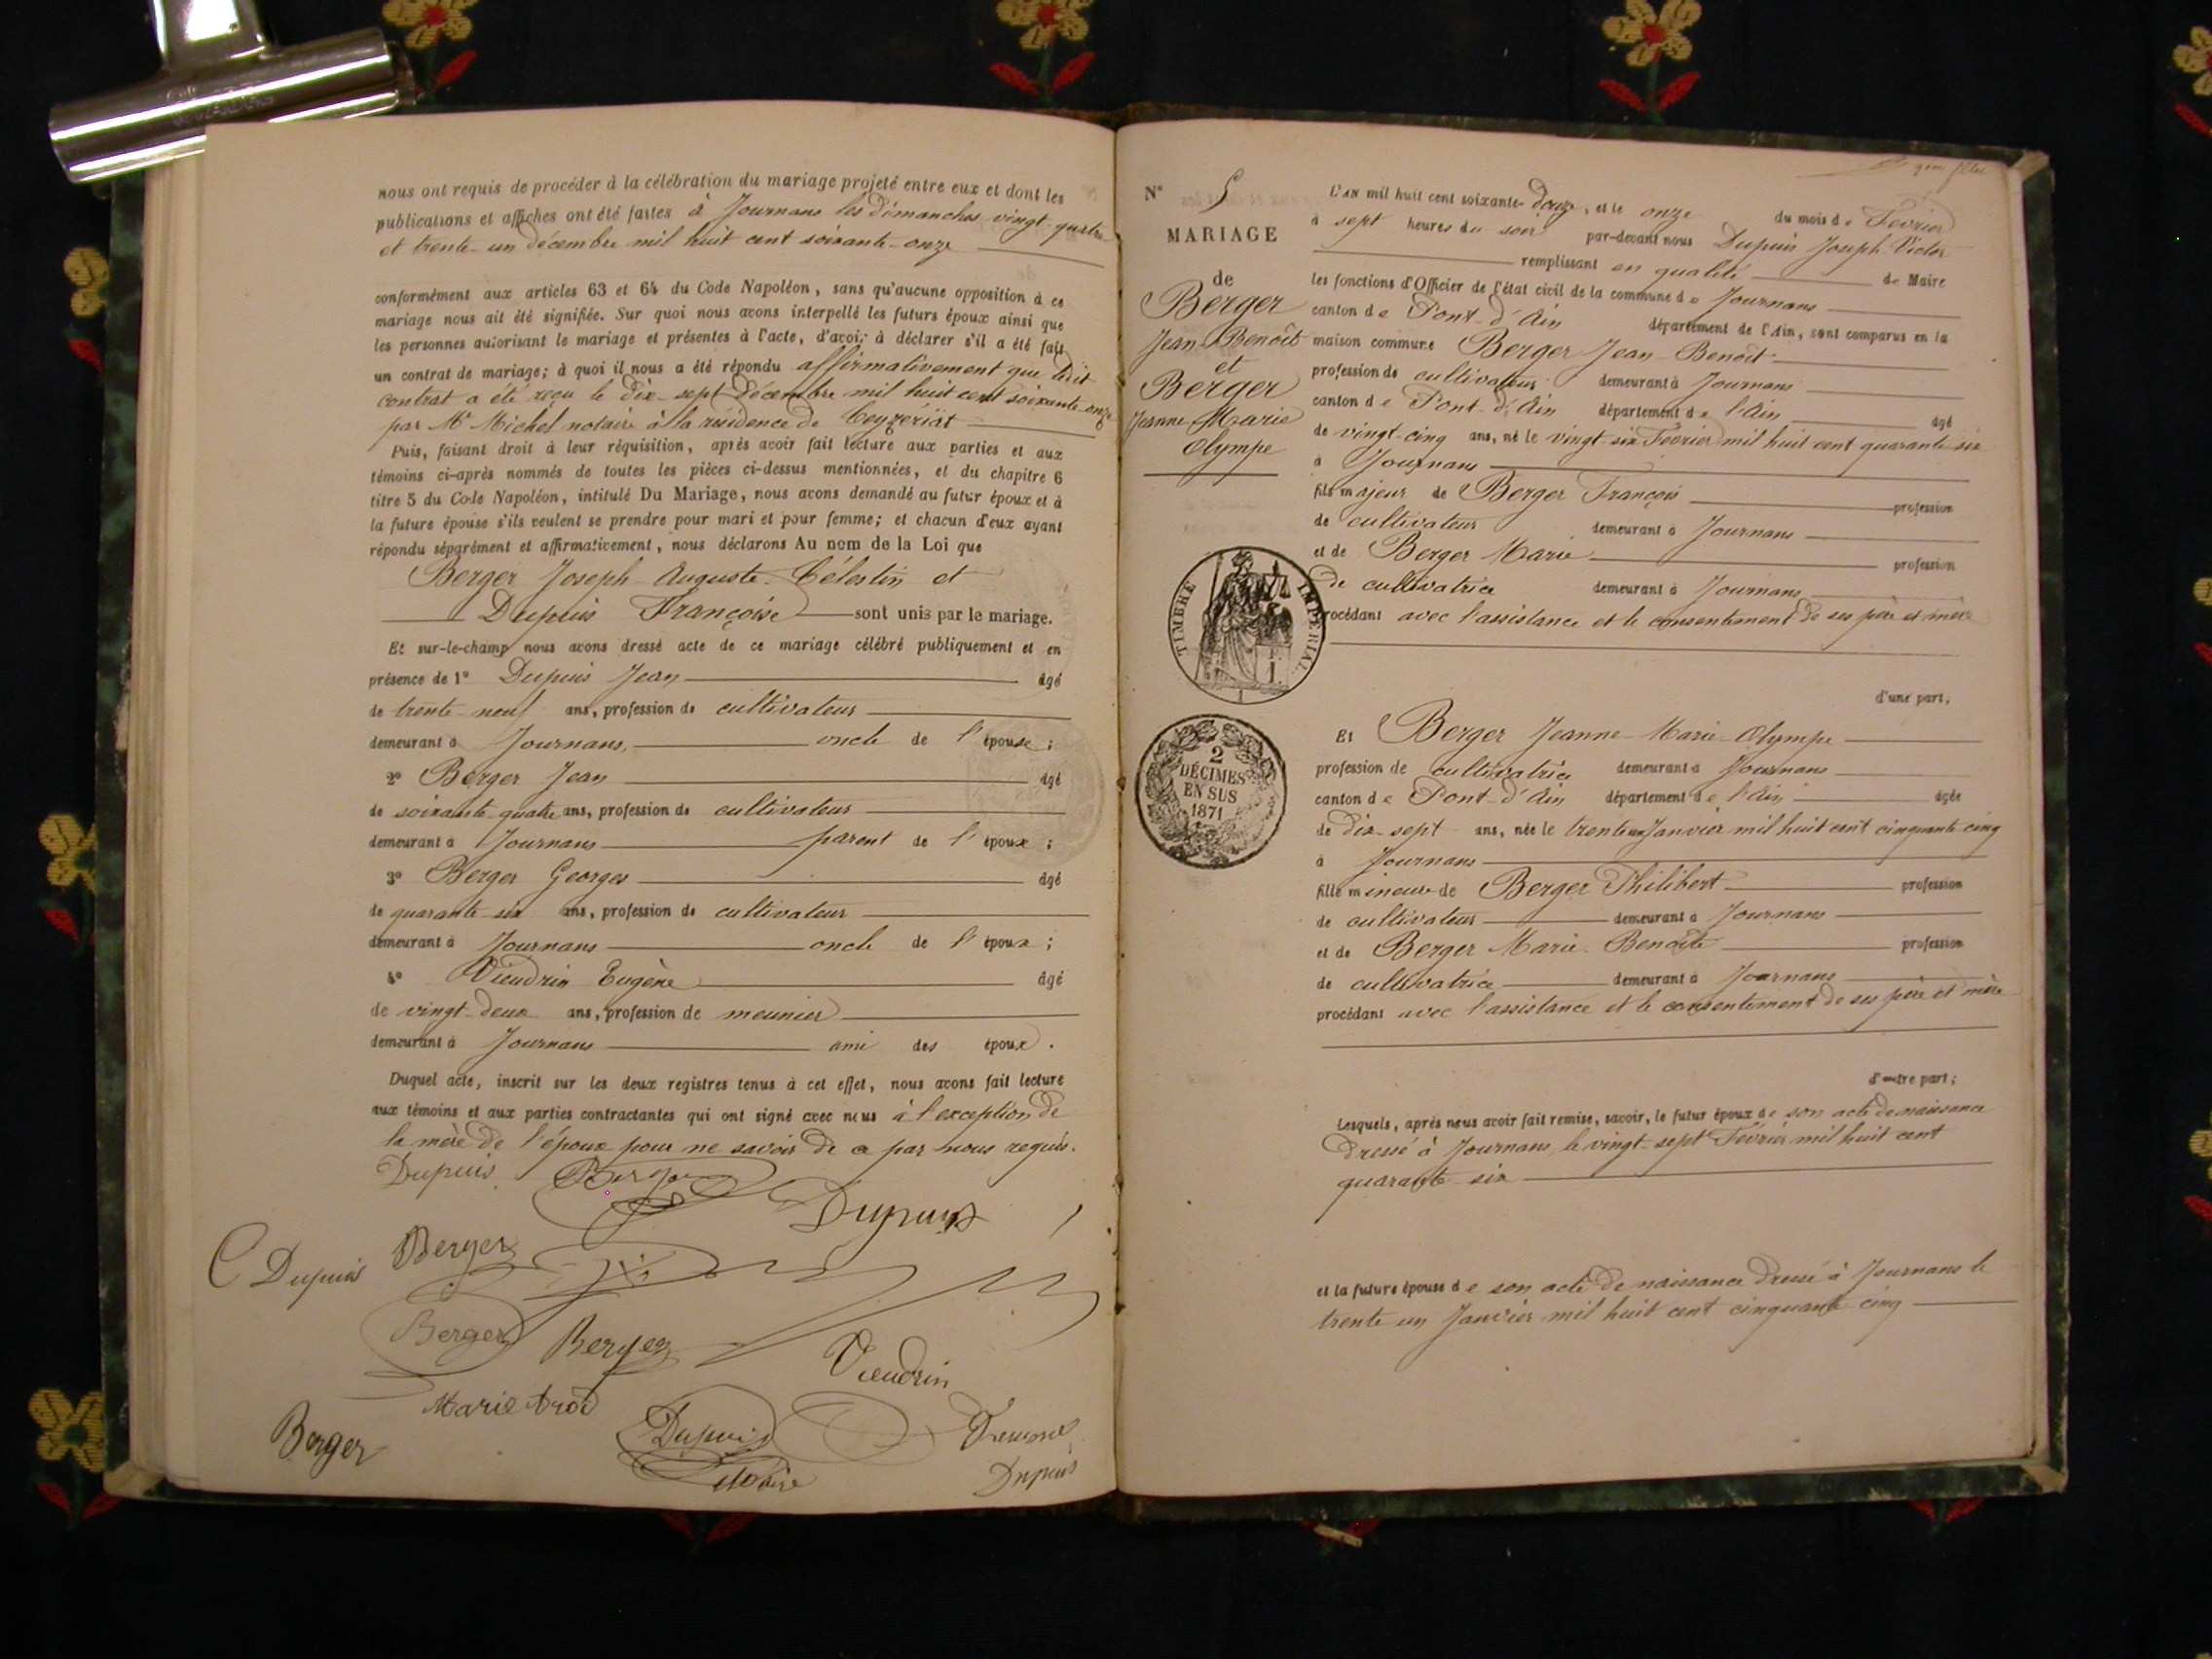 nous ont requis de procéder à la célébration du mariage projeté entre eux et dont les
publications et affiches ont été faites à Journans les dimanches vingt-quatre
et trente-un décembre mil huit cent soixante-onze
conformément aux articles 63 et 64 du Code Napoléon, sans qu'aucune opposition à ce
mariage nous ait été signifiée. Sur quoi nous avons interpellé les futurs époux ainsi que
les personnes autorisant le mariage et présentes à l'acte, d'avoir à déclarer s'il a été fait
un contrat de mariage; à quoi il nous a été répondu affirmativement que dit
contrat a été reçu le dix-sept décembre mil huit cent soixante-onze
par Me Michel notaire à la résidence de Ceyzériat
Puis, faisant droit à leur réquisition, après avoir fait lecture aux parties et aux
témoins ci-après nommés de toutes les pièces ci-dessus mentionnées, et du chapitre 6
titre 5 du Code Napoléon, intitulé Du Mariage, nous avons demandé au futur époux et à
la future épouse s'ils veulent se prendre pour mari et pour femme; et chacun d'eux ayant
répondu séparément et affirmativement, nous déclarons Au nom de la Loi que
Berger Joseph-Auguste-Célestin et
Dupuis Françoise sont unis par le mariage.
Et sur-le-champ nous avons dressé acte de ce mariage célébré publiquement et en
présence de 1° Dupuis Jean âgé
de trente-neuf ans, profession de cultivateur
demeurant à Journans, oncle de l'épouse;
2° Berger Jean âgé
de soixante-quatre ans, profession de cultivateur
demeurant à Journans parent de l'époux;
3° Berger Georges âgé
de quarante-six ans, profession de cultivateur
demeurant à Journans oncle de l'époux;
4° Vieudrin Eugène âgé
de vingt-deux ans, profession de meunier
demeurant à Journans ami des époux.
Duquel acte, inscrit sur les deux registres tenus à cet effet, nous avons fait lecture
aux témoins et aux parties contractantes qui ont signé avec nous à l'exception de
la mère de l'époux pour ne savoir de ce par nous requis.
Dupuis Berger
Dupuis
C Dupuis Berger
Berger Berger
Vieudrin
Marie
Berger Dupuis
Maire Dupuis
N° 5
MARIAGE
de
Berger
Jean-Benoît
et
Berger
Jeanne-Marie
Olympe
TIMBRE IMPÉRIAL
2
DÉCIMES
EN SUS
1871
L'AN mil huit cent soixante-douze, et le onze du mois de Février
à sept heures du soir par-devant nous Dupuis Joseph-Victor
remplissant en qualité de Maire
les fonctions d'Officier de l'état civil de la commune de Journans
canton de Pont-d'Ain département de l'Ain, sont comparus en la
maison commune Berger Jean-Benoît
profession de cultivateur demeurant à Journans
canton de Pont-d'Ain département de l'Ain âgé
de vingt-cinq ans, né le vingt-six Février mil huit cent quarante-six
à Journans
fils majeur de Berger François profession
de cultivateur demeurant à Journans
et de Berger Marie profession
de cultivatrice demeurant à Journans
procédant avec l'assistance et le consentement de ses père et mère
d'une part,
Et Berger Jeanne-Marie-Olympe
profession de cultivatrice demeurant à Journans
canton de Pont-d'Ain département de l'Ain âgée
de dix-sept ans, née le trente un Janvier mil huit cent cinquante-cinq
à Journans
fille mineure de Berger Philibert profession
de cultivateur demeurant à Journans
et de Berger Marie-Benoîte profession
de cultivatrice demeurant à Journans
procédant avec l'assistance et le consentement de ses père et mère
d'autre part;
Lesquels, après nous avoir fait remise, savoir, le futur époux de son acte de naissance
dressé à Journans le vingt-sept Février mil huit cent
quarante-six
et la future épouse de son acte de naissance dressé à Journans le
trente un Janvier mil huit cent cinquante-cinq